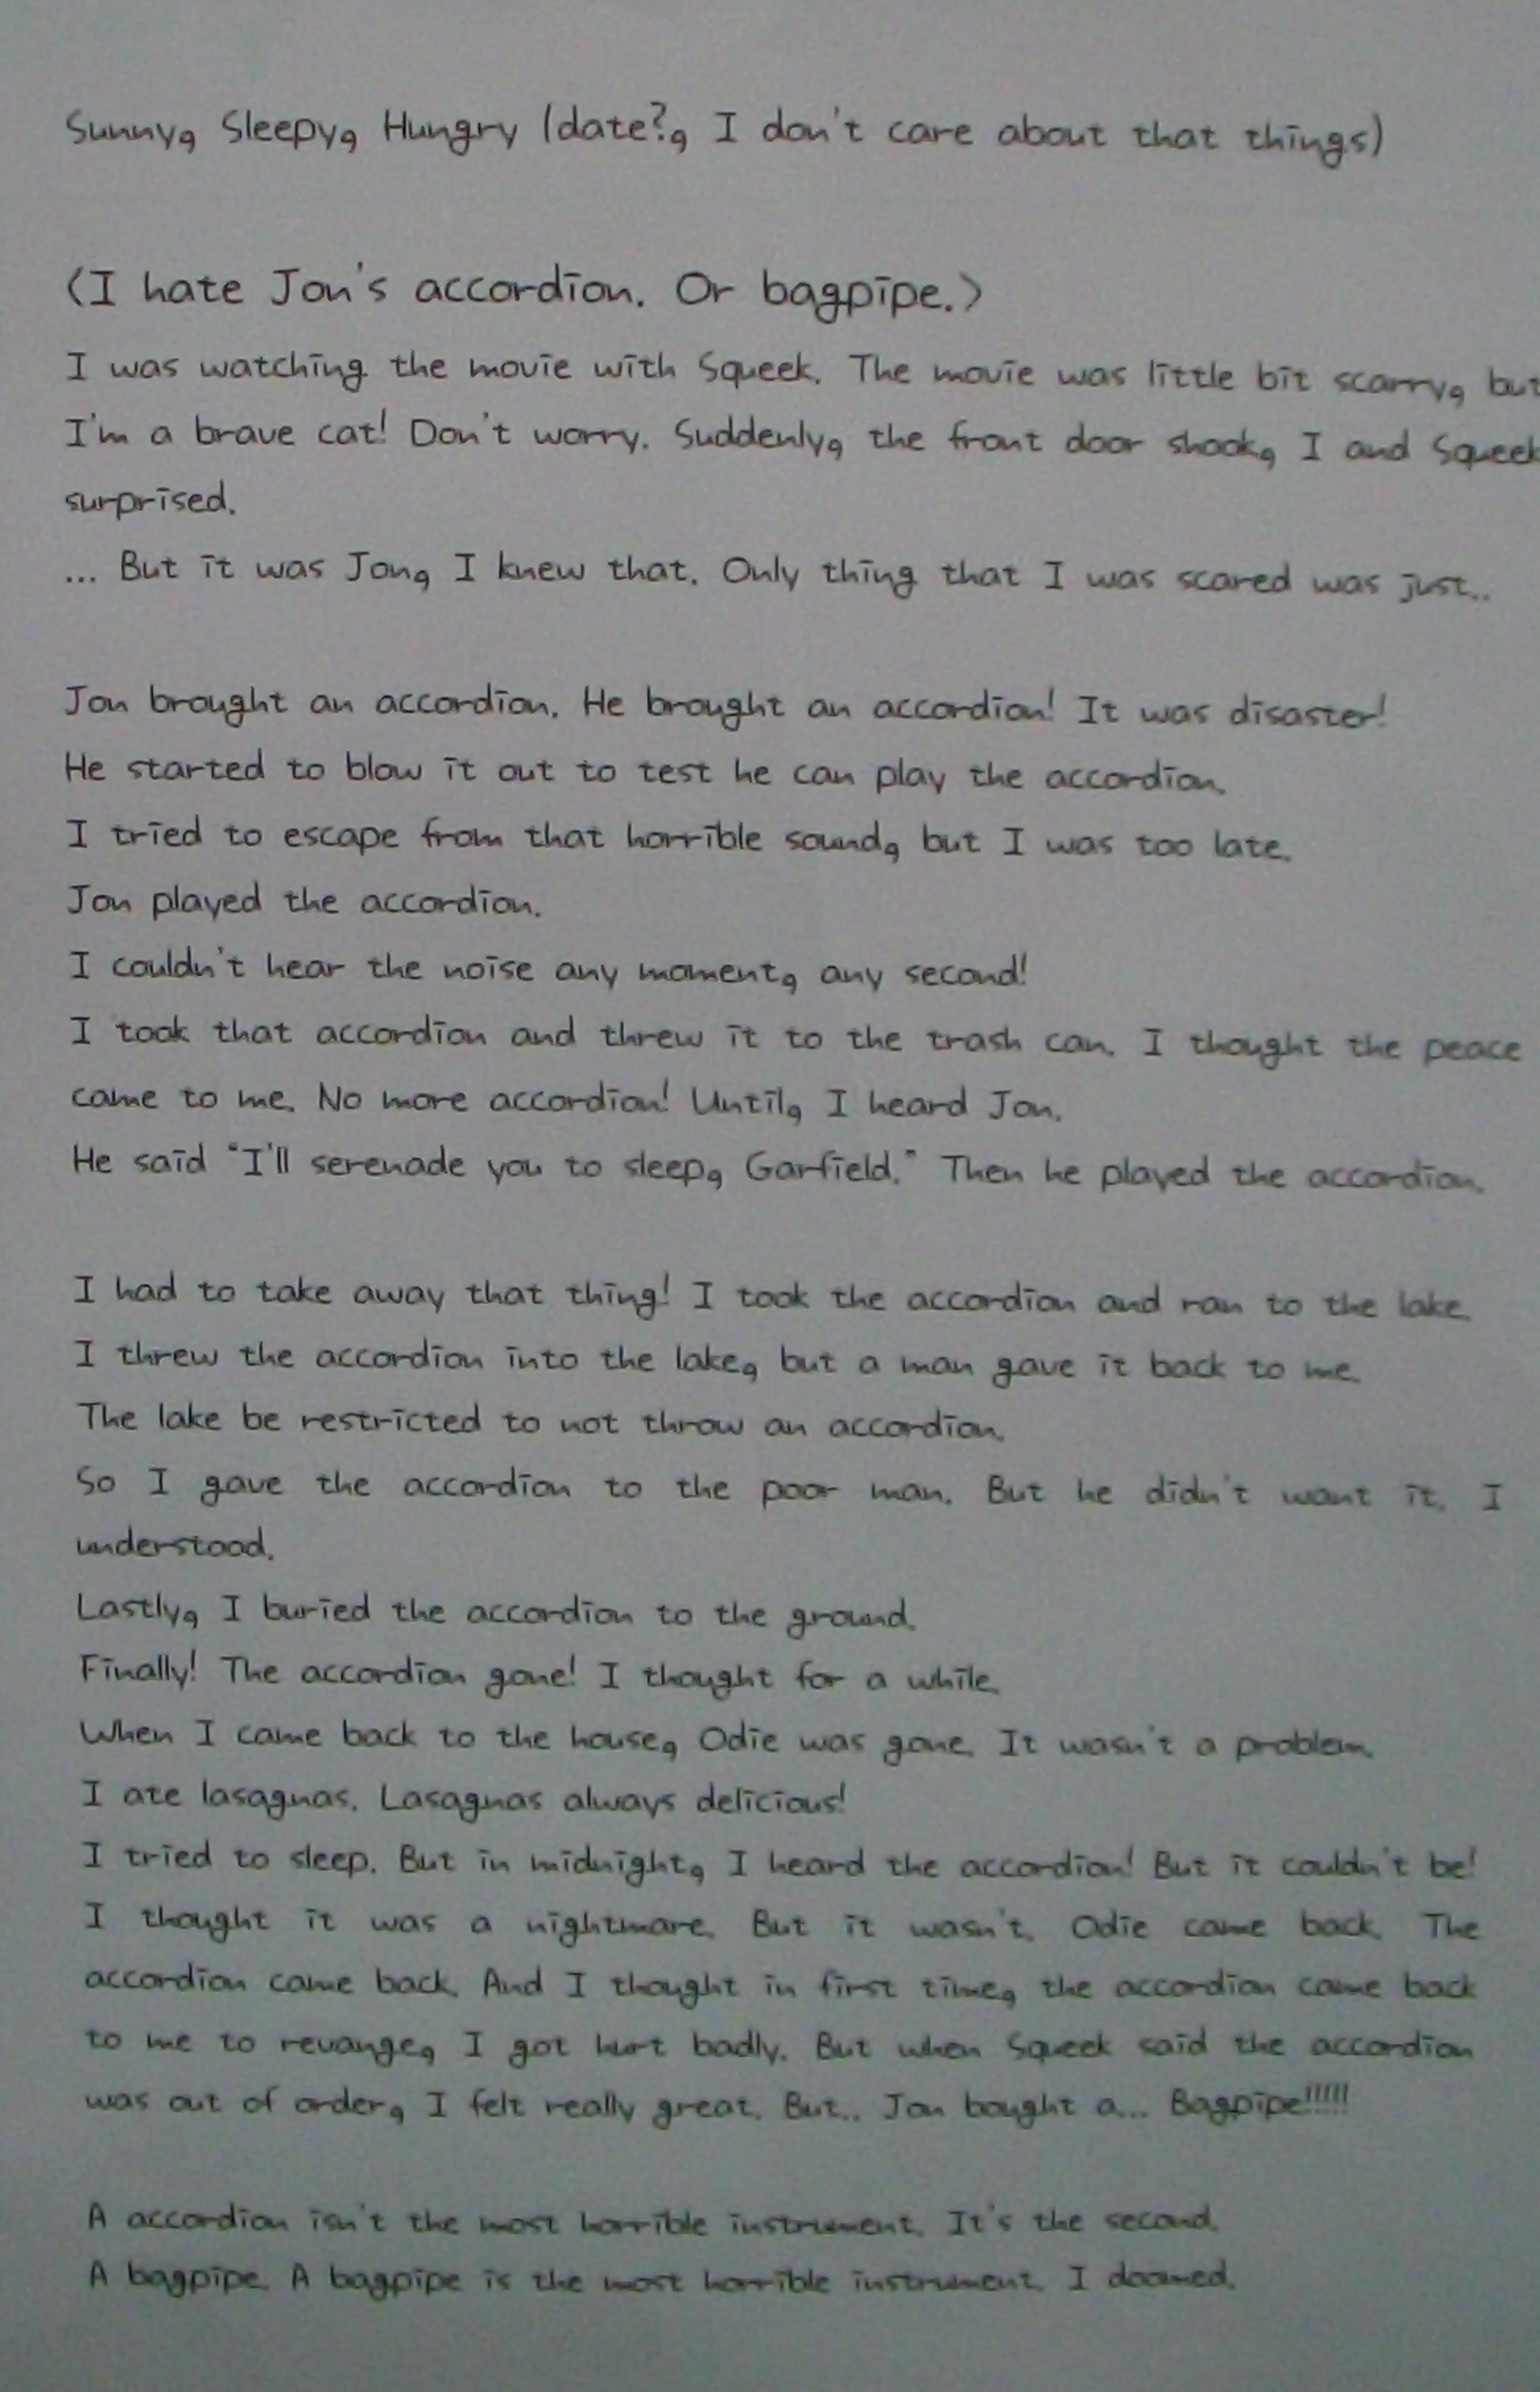 Sunny, Sleepy, Hungry (date?, I don't care about that things)
<I hate Jon's accordion. Or bagpipe.>
I was watching the movie with Squeek. The movie was little bit scarry, but
I'm a brave cat! Don't worry. Suddenly, the front door shook, I and Squeek
surprised.
... But it was Jon, I knew that. Only thing that I was scared was just..
Jon brought an accordion. He brought an accordion! It was disaster!
He started to blow it out to test he can play the accordion.
I tried to escape from that horrible sound, but I was too late.
Jon played the accordion.
I couldn't hear the noise any moment, any second!
I took that accordion and threw it to the trash can. I thought the peace
came to me. No more accordion! Until, I heard Jon.
He said "I'll serenade you to sleep, Garfield." Then he played the accordion.
I had to take away that thing! I took the accordion and ran to the lake.
I threw the accordion into the lake, but a man gave it back to me.
The lake be restricted to not throw an accordion.
So I gave the accordion to the poor man. But he didn't want it. I
understood.
Lastly, I buried the accordion to the ground.
Finally! The accordion gone! I thought for a while.
When I came back to the house, Odie was gone. It wasn't a problem.
I ate lasagnas. Lasagnas always delicious!
I tried to sleep. But in midnight, I heard the accordion! But it couldn't be!
I thought it was a nightmare. But it wasn't. Odie came back. The
accordion came back. And I thought in first time, the accordion came back
to me to revange, I got hurt badly. But when Squeek said the accordion
was out of order, I felt really great. But.. Jon bought a... Bagpipe!!!!!
A accordion isn't the most horrible instrument. It's the second.
A bagpipe. A bagpipe is the most horrible instrument. I doomed.